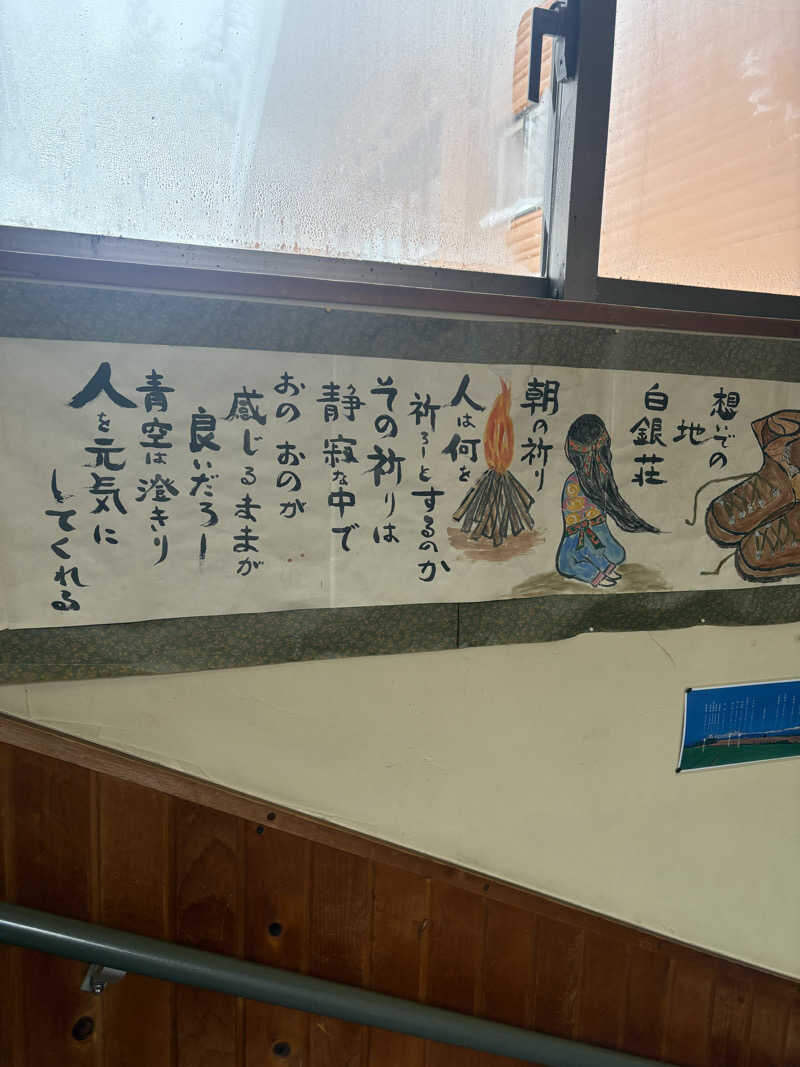 想いでの
地
白銀荘
朝の祈り
人は何を
祈ろーとするのか
その祈りは
静寂な中で
おの おのが
感じるままが
良いだろー
青空は澄きり
人を元気に
してくれる